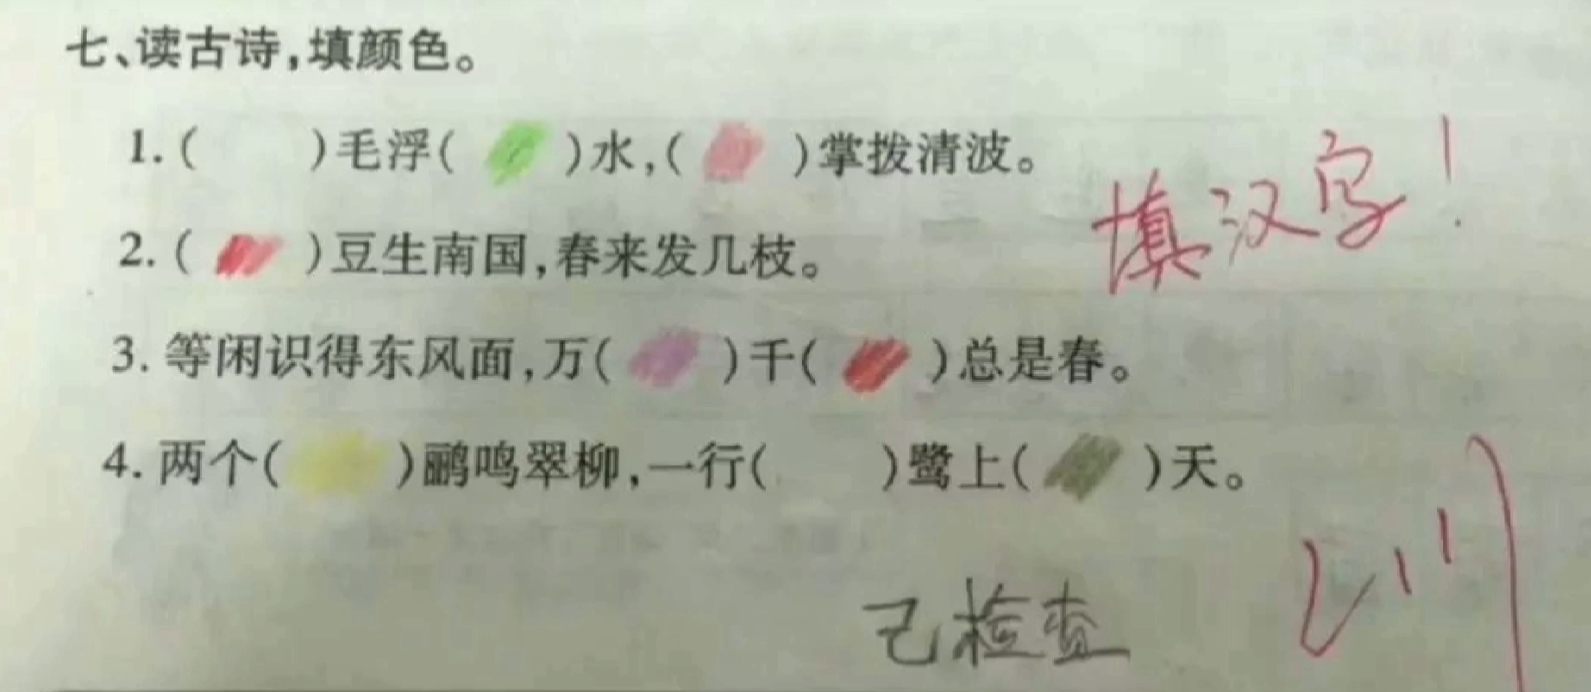 七、读古诗,填颜色。
1.(    )毛浮(    )水,(    )掌拨清波。
填汉字!
2.(    )豆生南国,春来发几枝。
3.等闲识得东风面,万(    )千(    )总是春。
4.两个(    )鹂鸣翠柳,一行(    )鹭上(    )天。
已检查